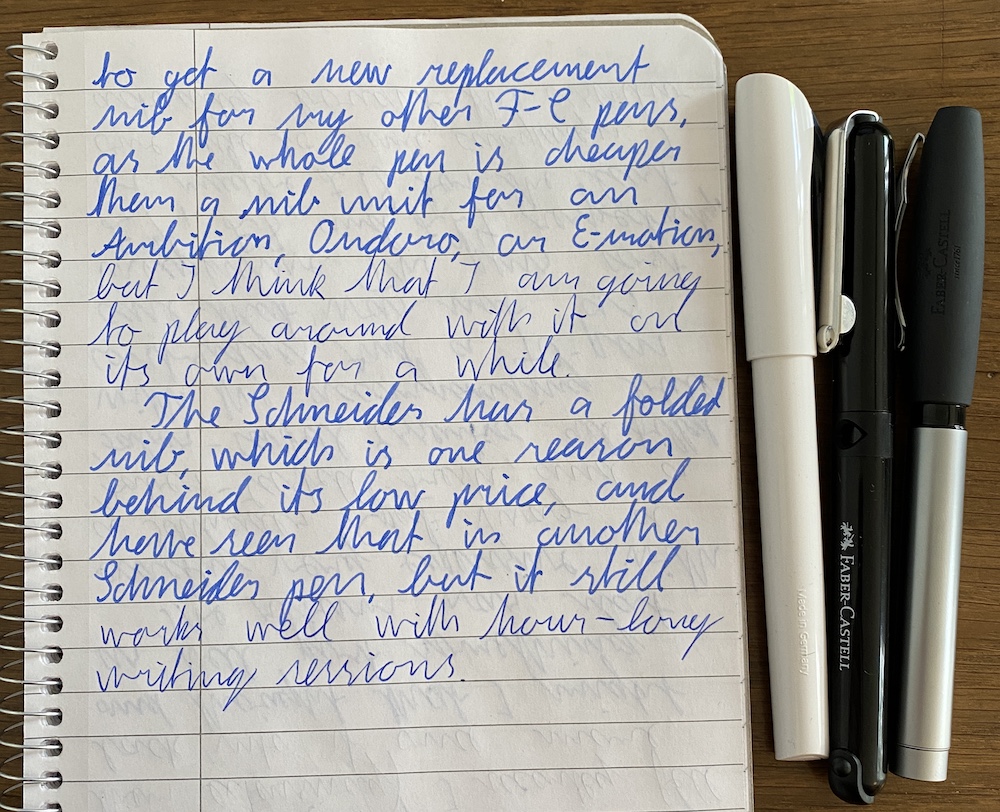 to get a new replacement
nib for my other F-C pens,
as the whole pen is cheaper
than a nib unit for an
Ambition, Ondoro, or E-motion,
but I think that I am going
to play around with it on
its own for a while.
The Schneider has a folded
nib, which is one reason
behind its low price, and
have seen that in another
Schneider pen, but it still
works well with hour-long
writing sessions.
Made in Germany
FABER-CASTELL
FABER-CASTELL
since 1761